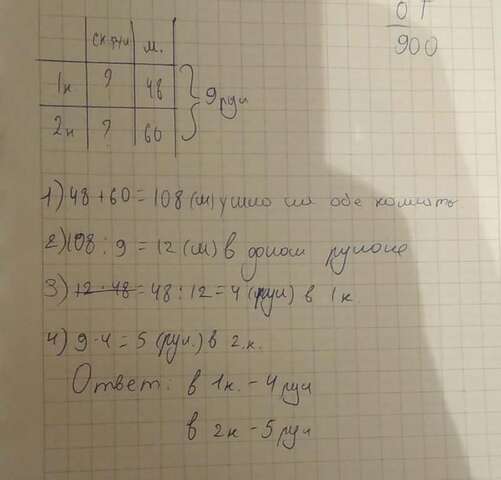 О Г
900
ск.рул м.
1к ? 48
9 рул
2к ? 60
1) 48 + 60 = 108 (м) ушло на обе комнаты
2) 108 : 9 = 12 (м) в одном рулоне
3) 12 · 48 = 48 : 12 = 4 (рул) в 1к.
4) 9 - 4 = 5 (рул.) в 2.к.
Ответ: в 1к. - 4 рул
в 2к - 5 рул